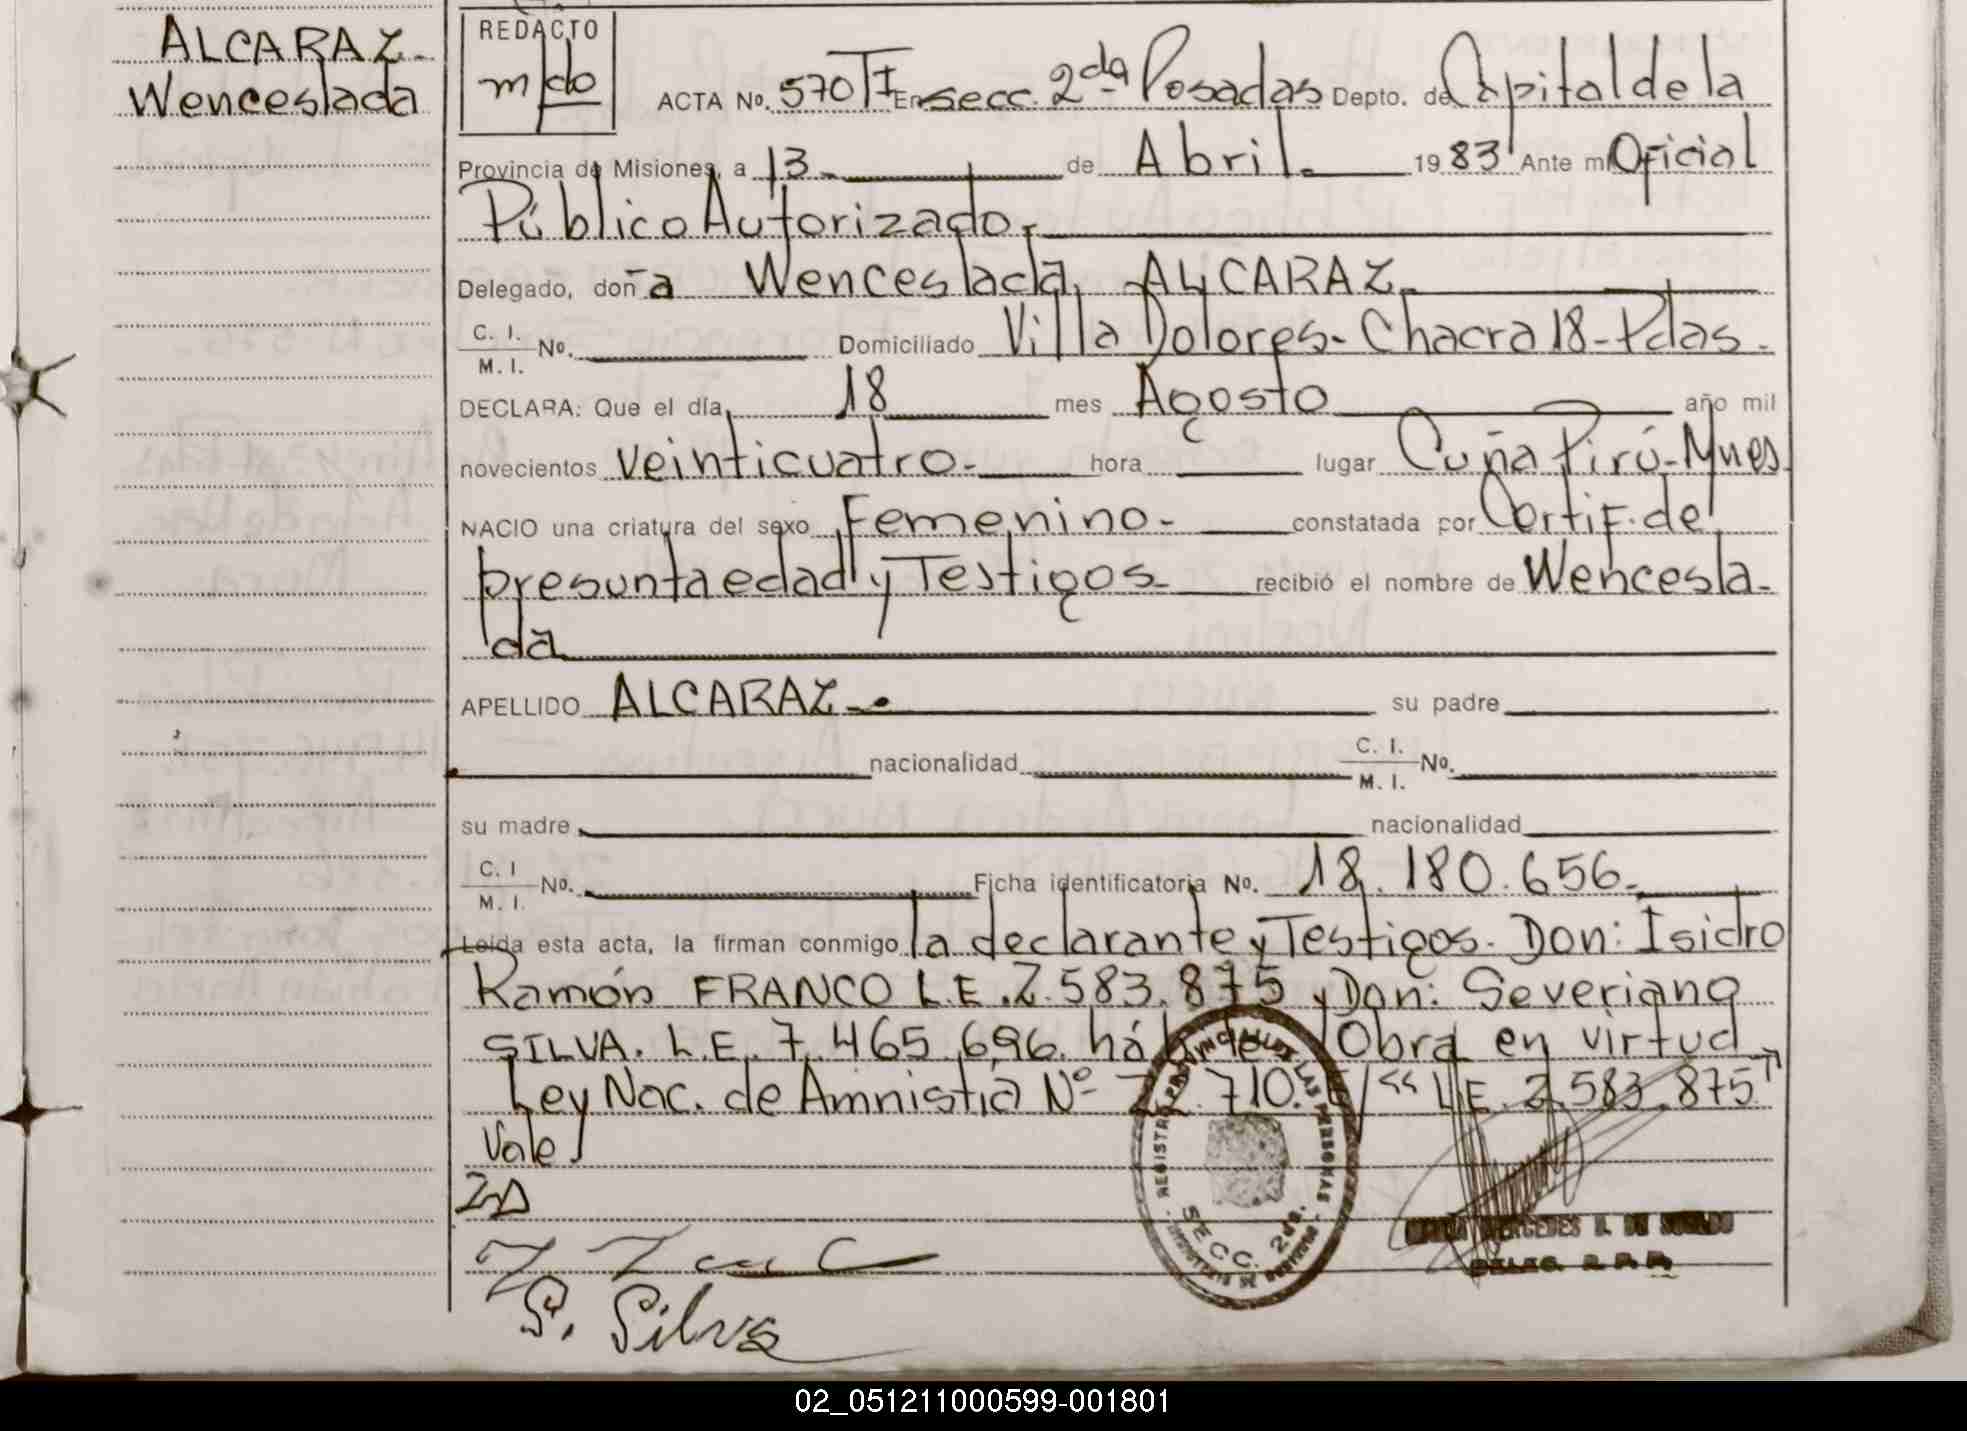 ALCARAZ.
Wenceslada
REDACTO
mdo
ACTA No. 570 TI En secc. 2da Posadas Depto. de Capital de la
Provincia de Misiones, a 13 de Abril. 1983 Ante mi Oficial
Público Autorizado.
Delegado, doña Wenceslada, ALCARAZ.
C. I. / M. I. No. Domiciliado Villa Dolores - Chacra 18 - Pdas.
DECLARA: Que el día, 18 mes Agosto año mil
novecientos veinticuatro. hora lugar Cuña Pirú - Mnes
NACIO una criatura del sexo Femenino - constatada por Certif. de
presunta edad y Testigos. recibió el nombre de Wencesla-
da
APELLIDO ALCARAZ. su padre
nacionalidad C. I. / M. I. No.
su madre nacionalidad
C. I / M. I. No. Ficha identificatoria No. 18.180.656.
Leida esta acta, la firman conmigo la declarante y Testigos. Don: Isidro
Ramón FRANCO L.E. 2.583.875 y Don: Severiano
SILVA. L.E. 7.465.696. Obra en virtud
Ley Nac. de Amnistia Nº 710. "L.E. 2.583.875"
Vale
S. Silva
REGISTRO PROVINCIAL DE LAS PERSONAS
SECC. 2da.
MERCEDES
DELEG. R.P.P.
02_051211000599-001801